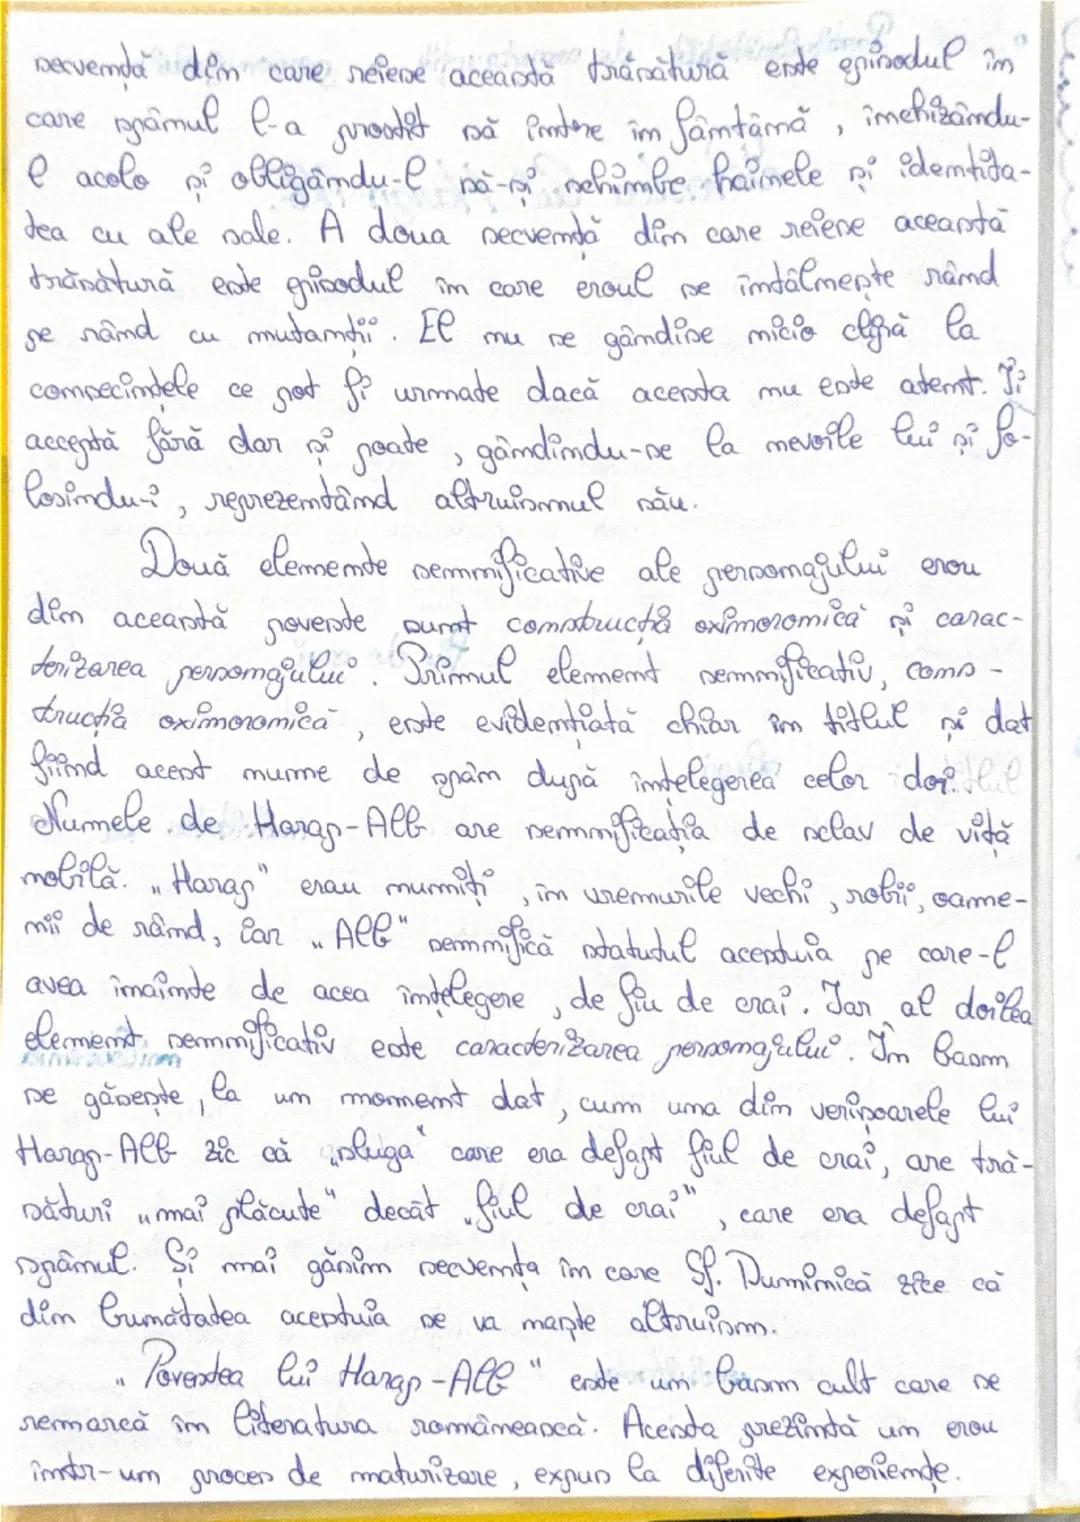 secvență din care reiese această trăsătură este episodul în
care spânul l-a prostit să intre în fântână, închizându-
l acolo și obligându-l să-și schimbe hainele și identita-
tea cu ale sale. A doua secvență din care reiese această
trăsătură este episodul în care eroul se întâlnește rând
pe rând cu mutanții. El nu se gândise nicio clipă la
consecințele ce pot fi urmate dacă acesta nu este atent. Îi
acceptă fără dar și poate, gândindu-se la nevoile lui și fo-
losindu-i, reprezentând altruismul său.
Două elemente semnificative ale personajului erou
din această poveste sunt construcția oximoronică și carac-
terizarea personajului. Primul element semnificativ, cons-
trucția oximoronică, este evidențiată chiar în titlul și dat
fiind acest nume de spân după înțelegerea celor doi.
Numele de Harap-Alb are semnificația de sclav de viță
nobilă. „Harap" erau numiți, în vremurile vechi, robii, oame-
nii de rând, iar „Alb" semnifică statutul acestuia pe care-l
avea înainte de acea înțelegere, de fiu de crai. Iar al doilea
element semnificativ este caracterizarea personajului. În basm
se găsește, la un moment dat, cum una din verișoarele lui
Harap-Alb zic că „sluga" care era defapt fiul de crai, are tră-
sături „mai plăcute" decât „fiul de crai", care era defapt
spânul. Și mai găsim secvența în care Sf. Duminică zice că
din bunătatea acestuia se va naște altruism.
„Povestea lui Harap-Alb" este un basm cult care se
remarcă în literatura românească. Acesta prezintă un erou
într-un proces de maturizare, expus la diferite experiențe.